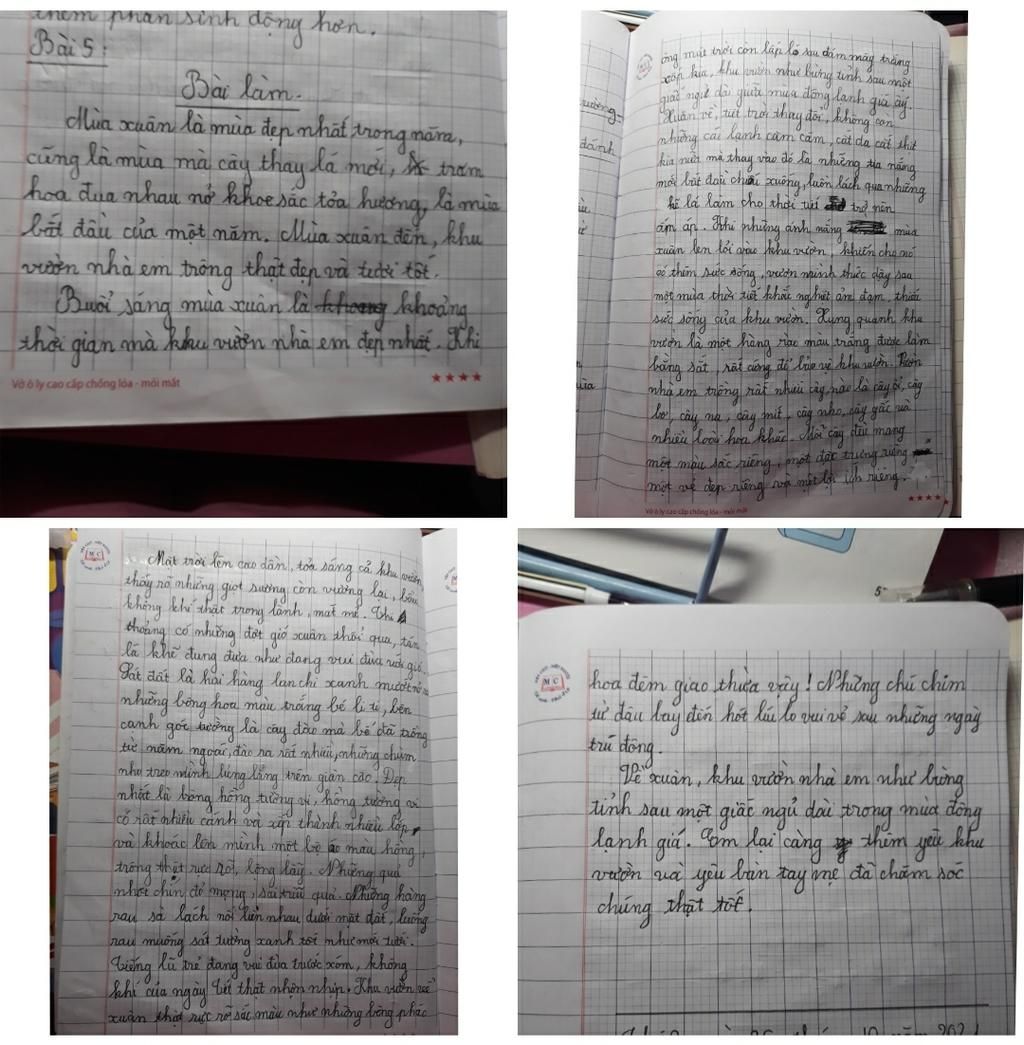 thêm phần sinh động hơn.
Bài 5:
Bài làm.
Mùa xuân là mùa đẹp nhất trong năm,
cũng là mùa mà cây thay lá mới, trăm
hoa đua nhau nở khoe sắc tỏa hương, là mùa
bắt đầu của một năm. Mùa xuân đến, khu
vườn nhà em trông thật đẹp và tươi tốt.
Buổi sáng mùa xuân là khoảng
thời gian mà khu vườn nhà em đẹp nhất. Khi
Vở ô ly cao cấp chống lóa - mỏi mắt
ông mặt trời còn lấp ló sau đám mây trắng
xốp kia, khu vườn như bừng tỉnh sau một
giấc ngủ dài giữa mùa đông lạnh giá ấy.
Xuân về, tiết trời thay đổi, không còn
những cái lạnh căm căm, cắt da cắt thịt
kia nữa mà thay vào đó là những tia nắng
mới bắt đầu chiếu xuống, luồn lách qua những
kẽ lá làm cho thời tiết trở nên
ấm áp. Khi những ánh nắng mùa
xuân len lỏi vào khu vườn, khiến cho nó
có thêm sức sống, vươn mình thức dậy sau
một mùa thời tiết khắc nghiệt ảm đạm, thiếu
sức sống của khu vườn. Xung quanh khu
vườn là một hàng rào màu trắng được làm
bằng sắt, rất cứng để bảo vệ khu vườn. Vườn
nhà em trồng rất nhiều cây, nào là cây ổi, cây
bơ, cây na, cây mít, cây nho, cây gấc và
nhiều loài hoa khác. Mỗi cây đều mang
một màu sắc riêng, một đặc trưng riêng
một vẻ đẹp riêng và một lợi ích riêng.
Vở ô ly cao cấp chống lóa - mỏi mắt
M C
Mặt trời lên cao dần, tỏa sáng cả khu vườn,
thấy rõ những giọt sương còn vương lại, bầu
không khí thật trong lành, mát mẻ. Thi
thoảng có những đợt gió xuân thổi qua, tán
lá khẽ đung đưa như đang vui đùa với gió.
Sát đất là hai hàng lan chi xanh mướt nở ra
những bông hoa màu trắng bé li ti, bên
cạnh góc tường là cây đào mà bố đã trồng
từ năm ngoái, đào ra rất nhiều, những chùm
nho treo mình lủng lẳng trên giàn cao. Đẹp
nhất là bông hồng tường vi, hồng tường vi
có rất nhiều cánh và xếp thành nhiều lớp
và khoác lên mình một bộ áo màu hồng,
trông thật rực rỡ, lộng lẫy. Những quả
nhót chín đỏ mọng, sai trĩu quả. Những hàng
rau xà lách nối liền nhau dưới mặt đất, luống
rau muống sát tường xanh tốt như mới tưới.
Tiếng lũ trẻ đang vui đùa trước xóm, không
khí của ngày Tết thật nhộn nhịp. Khu vườn về
xuân thật rực rỡ sắc màu như những bông pháo
M C
hoa đêm giao thừa vậy! Những chú chim
từ đâu bay đến hót líu lo vui vẻ sau những ngày
trú đông.
Về xuân, khu vườn nhà em như bừng
tỉnh sau một giấc ngủ dài trong mùa đông
lạnh giá. Em lại càng thêm yêu khu
vườn và yêu bàn tay mẹ đã chăm sóc
chúng thật tốt.